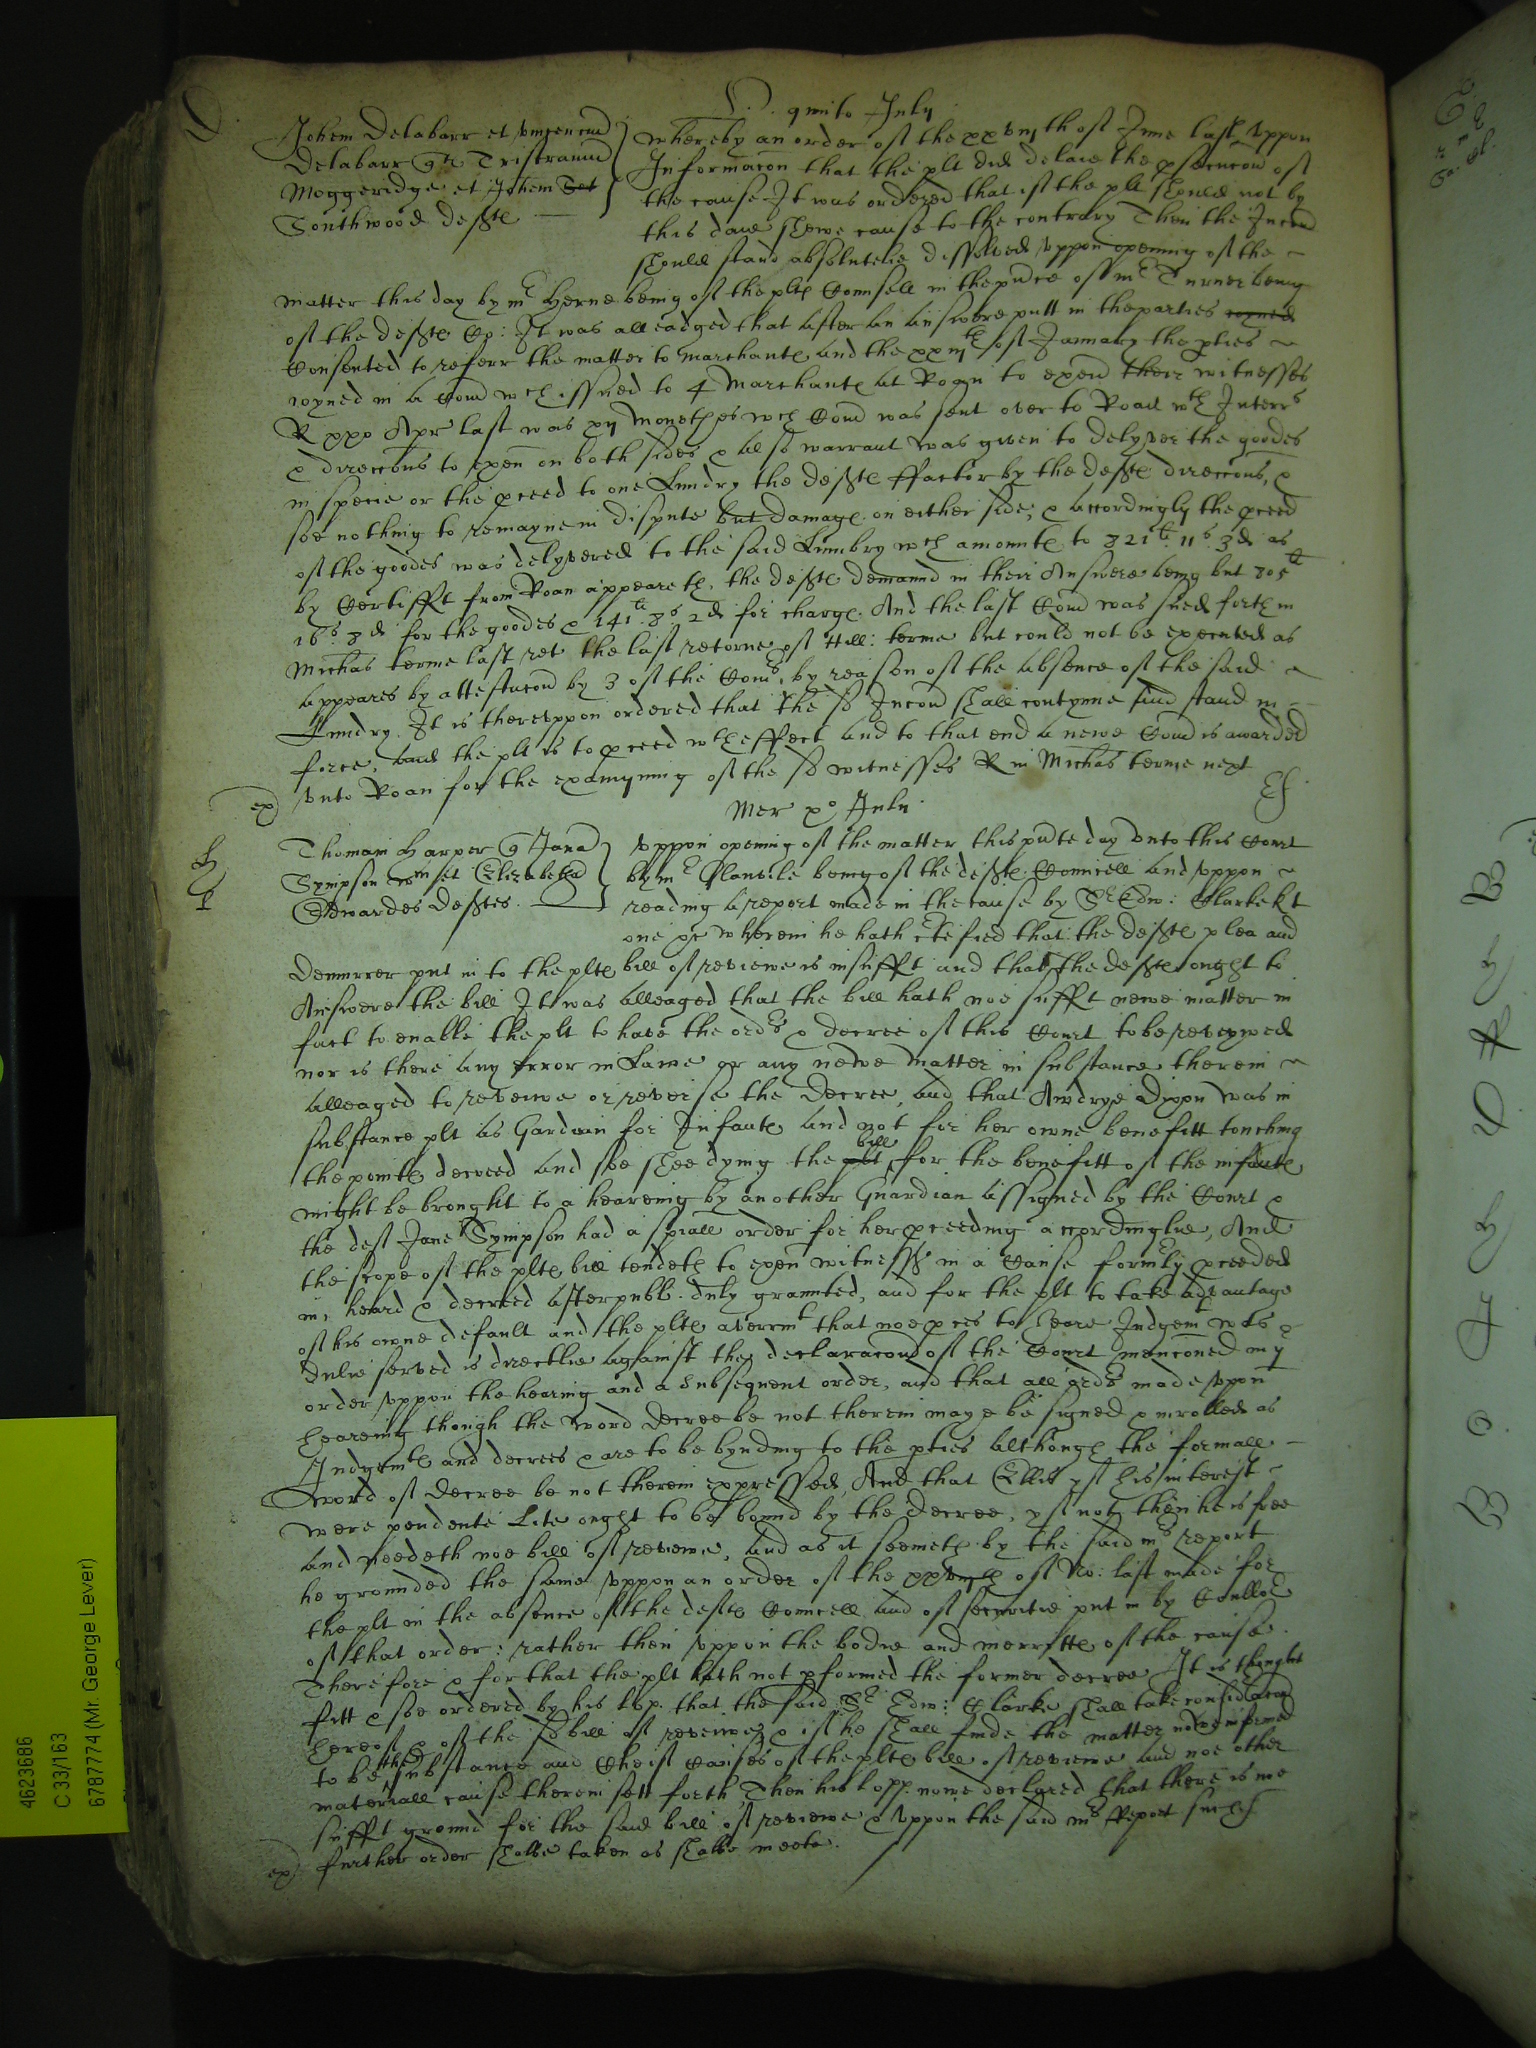 D
V. quinto July
Johem Delabarr et vincencium
Delabarr qu Tristramum
Moggeridge et Johem Sct
Southwood defte
whereby an order of the xxviijth of June last vppon
Informacon that the plt did delaie the psecucon of
the cause It was ordered that if the plt should not by
this daie shewe cause to the contrary Then the Iniunc
should stand absolutelie dissolved vppon opening of the
matter this day by mr Herne being of the plte Counsell in the pnce of mr Turner being
of the defte Co: It was alleadged that after an answere putt in the parties ioyned
Consented to referr the matter to marchante and the xxiijth of January the pties
ioyned in a Comi wch issued to 4 Marchante at Roan to exem their witnesses
R xxxo Apr last was xij monethes wch Comi was sent over to Roan wth Interrs
& direccons to exem on both sides & also warrant was given to delyver the goodes
in specie or the pceed to one Lundry the defte ffactor by the defte direccons, &
soe nothing to remayne in dispute but damage on either side, & accordingly the pceed
of the goodes was delyvered to the said Lundry wch amounte to 321li 11s 3d as
by Certifft from Roan appeareth, the defte demaund in their Answere being but 305li
16s 8d for the goodes & 141li 8s 2d for charge. And the last Comi was sued forth in
Michas terme last ret the last retorne of Hill: terme but could not be executed as
appeares by attestacon by 3 of the Comrs, by reason of the absence of the said
Lundry. It is therevppon ordered that the sd Iniunccon shall contynue and stand in
force, and the plt is to pceed wth effect and to that end a newe Comi is awarded
vnto Roan for the examyning of the sd witnesses R in Michas terme next
ex
Mer xo July
Thomam Harper q Jana
Sympson et Elizabeth
Edwardes deftes.
vppon opening of the matter this pnte day vnto this Court
by mr Glanvile being of the defte Councell and vppon
reading a report made in the cause by Sr Edw: Clarke kt
one &c wherein he hath ctefied that the defte plea and
Demurrer put in to the plte bill of reviewe is insufft and that the defte ought to
Answere the bill It was alleaged that the bill hath noe sufft newe matter in
fact to enable the plt to have the ords & decree of this Court to be reviewed
nor is there any error in Lawe or any newe matter in substance therein
alleaged to reviewe or reverse the Decree, and that Awdrye Dixon was in
substance plt as Gardian for Infante and not for her owne benefitt touching
the pointe decreed and soe shee dying the plt bill for the benefitt of the infante
might be brought to a heareing by another Guardian assigned by the Court &
the deft Jane Sympson had a spiall order for her pceeding accordinglie, And
the scope of the plte bill tendeth to exem witnesss in a Cause formly pceeded
in, heard & decreed after publ. duly graunted, and for the plt to take advantage
of his owne default and the plte averrmt that noe pces to heare Judgemt was
dulie served is directlie against the declaracon of the Court menconed in ye
order vppon the hearing and a subsequent order, and that all ords made vpon
heareing though the word Decree be not therein maye be signed & inrolled as
Judgemte and decrees & are to be bynding to the pties although the formall
word of Decree be not therein expressed, And that Ellis yf his interest
were pendente Lite ought to be bound by the decree, yf not then he is free
and needeth noe bill of reviewe, and as it seemeth by the said mrs report
he grounded the same vppon an order of the xxviijth of No: last made for
the plt in the absence of the defte Councell and of securitie put in by Coullor
of that order: rather then vppon the bodie and merritte of the cause.
Therefore & for that the plt hath not pformed the former decree It is thought
fitt & soe ordered by his lop. that the said Sr Edw: Clarke shall take considacon
hereof & of the sd bill of reviewe & if he shall finde the matter nowe informed
to be the substance and cheif causes of the plte bill of reviewe and noe other
materiall cause therein sett forth Then his lopp. nowe declared that there is noe
sufft ground for the said bill of reviewe & vppon the said mrs Report such
further order shalbe taken as shalbe meete.
ex
4623686
C 33/163
6787774 (Mr. George Lever)